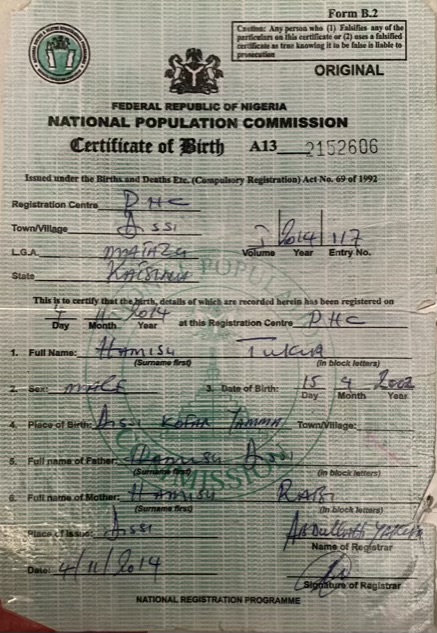 Form B.2
Caution: Any person who (1) Falsifies any of the
particulars on this certificate or (2) uses a falsified
certificate as true knowing it to be false is liable to
prosecution
ORIGINAL
FEDERAL REPUBLIC OF NIGERIA
NATIONAL POPULATION COMMISSION
Certificate of Birth A13 2152606
Issued under the Births and Deaths Etc. (Compulsory Registration) Act No. 69 of 1992
Registration Centre PHC
Town/Village Assi
L.G.A. MATAZU
State KATSINA
2014 117
Volume Year Entry No.
This is to certify that the birth, details of which are recorded herein has been registered on
4 11 2014 at this Registration Centre PHC
Day Month Year
1. Full Name: HAMISU
(Surname first) (In block letters)
2. Sex: MALE 3. Date of Birth: 15 4 2002
Day Month Year
4. Place of Birth: Assi KOFAR Town/Village:
5. Full name of Father: Hamisu
(Surname first) (In block letters)
6. Full name of Mother: HAMISU RABI
(Surname first) (In block letters)
Place of Issue: Assi
Name of Registrar
Date: 4/11/2014
Signature of Registrar
NATIONAL REGISTRATION PROGRAMME